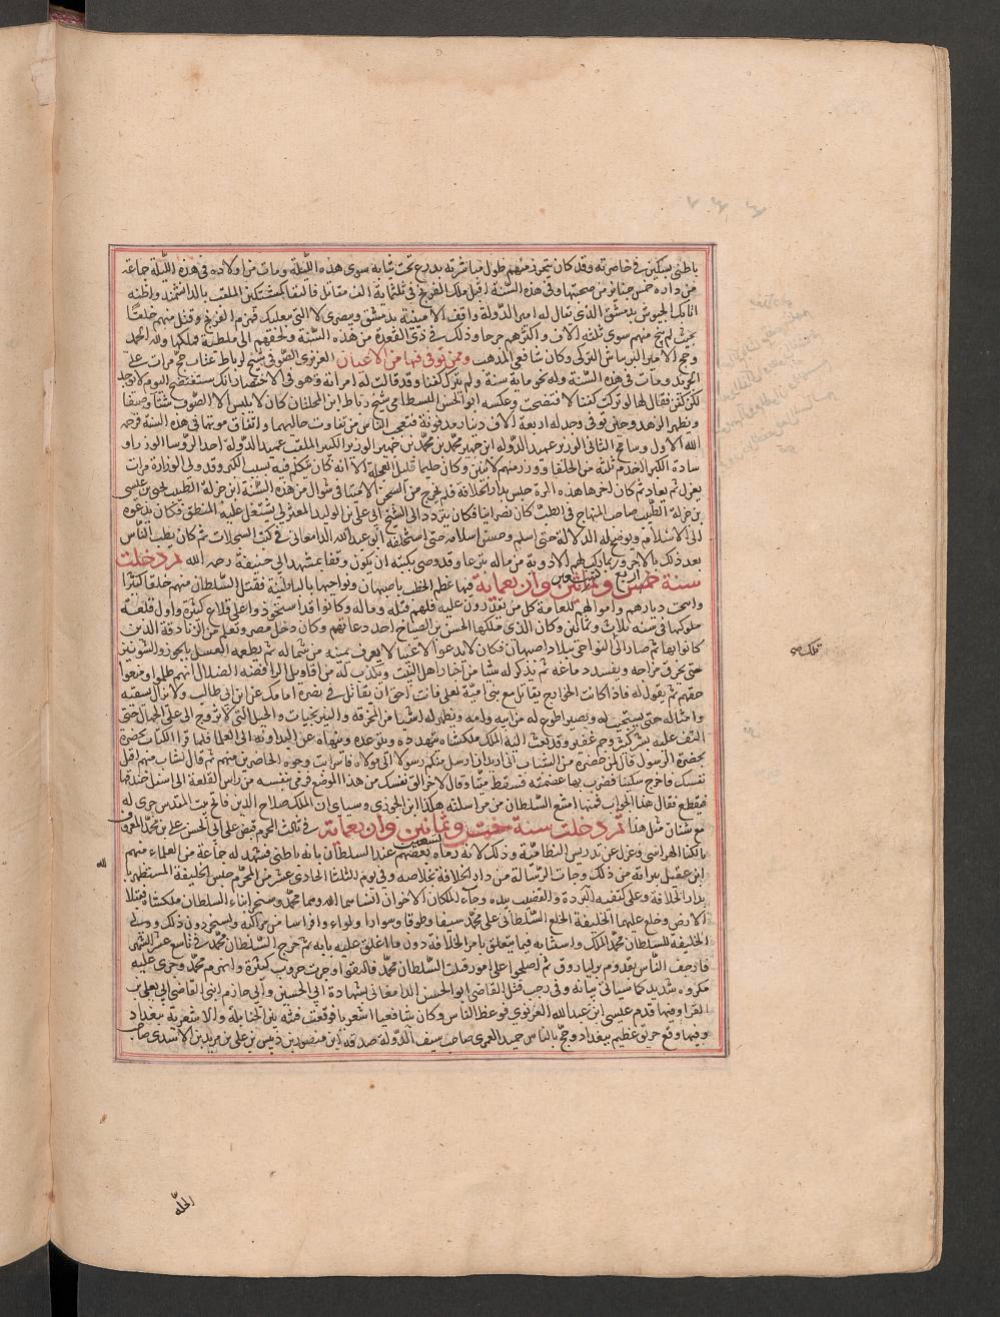 باطنى بسكين فى خاصرته وقد كان يتحرز منهم طول مباشرته بدرع تحت ثيابه سوى هذه الليلة ومات من اولاده فى هذه الليلة جماعة
من داره خمس جنائز من صبحتها وفى هذه السنة اقبل ملك الفرنج فى ثلثماية الف مقاتل فالتقاه كمشتكين الملقب بالداشمند واظنه
اتابك الجيوش بدمشق الذى يقال له امير الدولة واقف الامينية بدمشق وببصرى لا التى ببعلبك فهزم الفرنج وقتل منهم خلقا
بحيث لم ينج منهم سوى ثلثة الاف واكثرهم جرحا وذلك فى ذى القعدة من هذه السنة ولحقهم الى ملطية فملكها ولله الحمد
وحج الامير التركى وكان شافعى المذهب وممن توفى فيها من الاعيان الغزنوى الصوفى شيخ لرباط عتاب حج مرات على
التجريد ومات فى هذه السنة وله نحو ماية سنة ولم يترك كفنا وقد قالت له امراته وهو فى الاحتضار انك ستفتضح اليوم لا يوجد
لك كفن فقال لها لو تركت كفنا لافتضحت وعكسه ابو الحسن البسطامى شيخ رباط ابن المحلبان كان لا يلبس الا الصوف شتا وصيفا
ويظهر الزهد وحين توفى وجد له اربعة الاف دينار مدفونة فتعجب الناس من تفاوت حاليهما واتفاق موتهما فى هذه السنة فرحم
الله الاول وسامح الثانى الوزير عميد الدولة ابن جهير محمد بن محمد بن جهير الوزير الكبير الملقب عميد الدولة احد الروسا الوزراء و
سادة الكبرا خدم ثلثة من الخلفا ووزر منهم لاثنين وكان حليما قليل العجلة الا انه كان يتكلم فيه بسبب الكبر وقد ولى الوزارة مرات
يعزل ثم يعاد ثم كان اخرها هذه المرة حبس بدار الخلافة فلم يخرج من السجن الا ميتا فى شوال من هذه السنة ابن جزلة الطبيب يحيى بن عيسى
بن جزلة الطبيب صاحب المنهاج فى الطب كان نصرانيا فكان يتردد الى الشيخ ابى على بن الوليد المعتزلى يشتغل عليه المنطق فكان يدعوه
الى الاسلام ويوضح له الدلالة حتى اسلم وحسن اسلامه حتى استخلفه ابو عبد الله الدامغانى فى كتب السجلات ثم كان يطب الناس
بعد ذلك بلا اجر وربما ركب لهم الادوية من ماله تبرعا وقد وصى بكتبه ان يكون وقفا بمشهد ابى حنيفة رحمه الله ثم دخلت
سنة خمس وثمانين واربعماية فيها عظم الخطب باصبهان ونواحيها بالباطنية فقتل السلطان منهم خلقا كثيرا
اربع وتسعين
وابيحت ديارهم واموالهم للعامة كل من يقدرون عليه فلهم قتله وماله وكانوا قد استحوذوا على قلاع كثيرة واول قلعة
ملكوها فى سنه ثلاث وثمانين وكان الذى ملكها الحسن بن الصباح احد دعاتهم وكان دخل مصر وتعلم من الزنادقة الذين
كانوا بها ثم صار الى النواحى ببلاد اصبهان فكان لا يدعو الا غبيا لا يعرف يمينه من شماله ثم يطعمه العسل بالجوز والشونيز
حتى يحرق مزاجه ويفسد دماغه ثم يذكر له شيا من اخبار اهل البيت ويكذب له من اقاويل الرافضه الضلال انهم ظلموا ومنعوا
حقهم ثم يقول له فاذا كانت الخوارج يقاتل مع بنى امية لعلى فانت احق ان يقاتل فى نصرة امامك على بن ابى طالب ولا يزال يسقيه
وامثاله حتى يستجيب له ويصير اطوع له من ابيه وامه ويظهر له اشيا من المخرقه والنيرنجيات والحيل التى لا تروج الا على الجهال حتى
التف عليه بشر كثير وجم غفير وقد بعث اليه الملك ملكشاه يتهدده ويتوعده وينهاه عن ذلك الى العلما فلما قرا الكتاب بحضرة
بحضرة الرسول قال لمن حضره من الشباب انى اريد ان ارسل منكم رسولا الى مولاه فاشرابت وجوه الحاضرين منهم ثم قال لشاب منهم اقتل
نفسك فاخرج سكينا فضرب بها غلصمته فسقط ميتا وقال لاخر الق نفسك من هذا الموضع فرمى بنفسه من راس القلعة الى اسفل خندقها
فتقطع فقال هذا الجواب فمنها امتنع السلطان من مراسلته هكذا ابن الجوزى وسياتى ان الملك صلاح الدين فاتح بيت المقدس جرى له
مع سنان مثل هذا ثم دخلت سنة خمس وثمانين واربعماية فى ثالث المحرم قبض على ابى الحسن على بن محمد المعروف
وتسعين
بالكيا الهراسى وعزل عن تدريس النظامية وذلك لانه رماه بعضهم عند السلطان بانه باطنى فشهد له جماعة من العلماء منهم
ابن عقيل ببراته من ذلك وجات الرسالة من دار الخلافة بخلاصه وفى يوم الثلثا الحادى عشر من المحرم جلس الخليفة المستظهر با
بدار الخلافة وعلى كتفيه البردة والقضيب بيده وجاء الملكان الاخوان اتقاسما الله وهما محمد وسنجر ابناء السلطان ملكشاه فقبلا
الارض وخلع عليهما الخليفة الخلع السلطانى على محمد سيفا وطوقا وسوارا ولواء وافراسا من مراكبه ولسنجر دون ذلك وولى
الخليفة للسلطان محمد الملك واستنابه فيما يتعلق بامر الخلافة دون ما اغلق عليه بابه ثم خرج السلطان محمد فى تاسع عشر الشهر
فارجف الناس بقدوم بركياروق ثم اصطلحا على امور قبلت السلطان محمد فالتقوا وجرت حروب كثيرة وانهزم محمد وجرى عليه
مكروه شديد كما سياتى بيانه وفى رجب قبل القاضى ابو الحسن الدامغانى شهادة ابى الحسين وابى حازم ابنى القاضى ابى يعلى بن
الفرا وفيها قدم عيسى بن عبد الله الغزنوى فوعظ الناس وكان شافعيا اشعريا فوقعت فتنه بين الحنابلة والاشعرية ببغداد
وفيها وقع حريق عظيم ببغداد وحج بالناس حميد العمرى صاحب سيف الدولة صدقه ابن منصور بن دبيس بن على بن مزيد الاسدى صاحب
الحلة